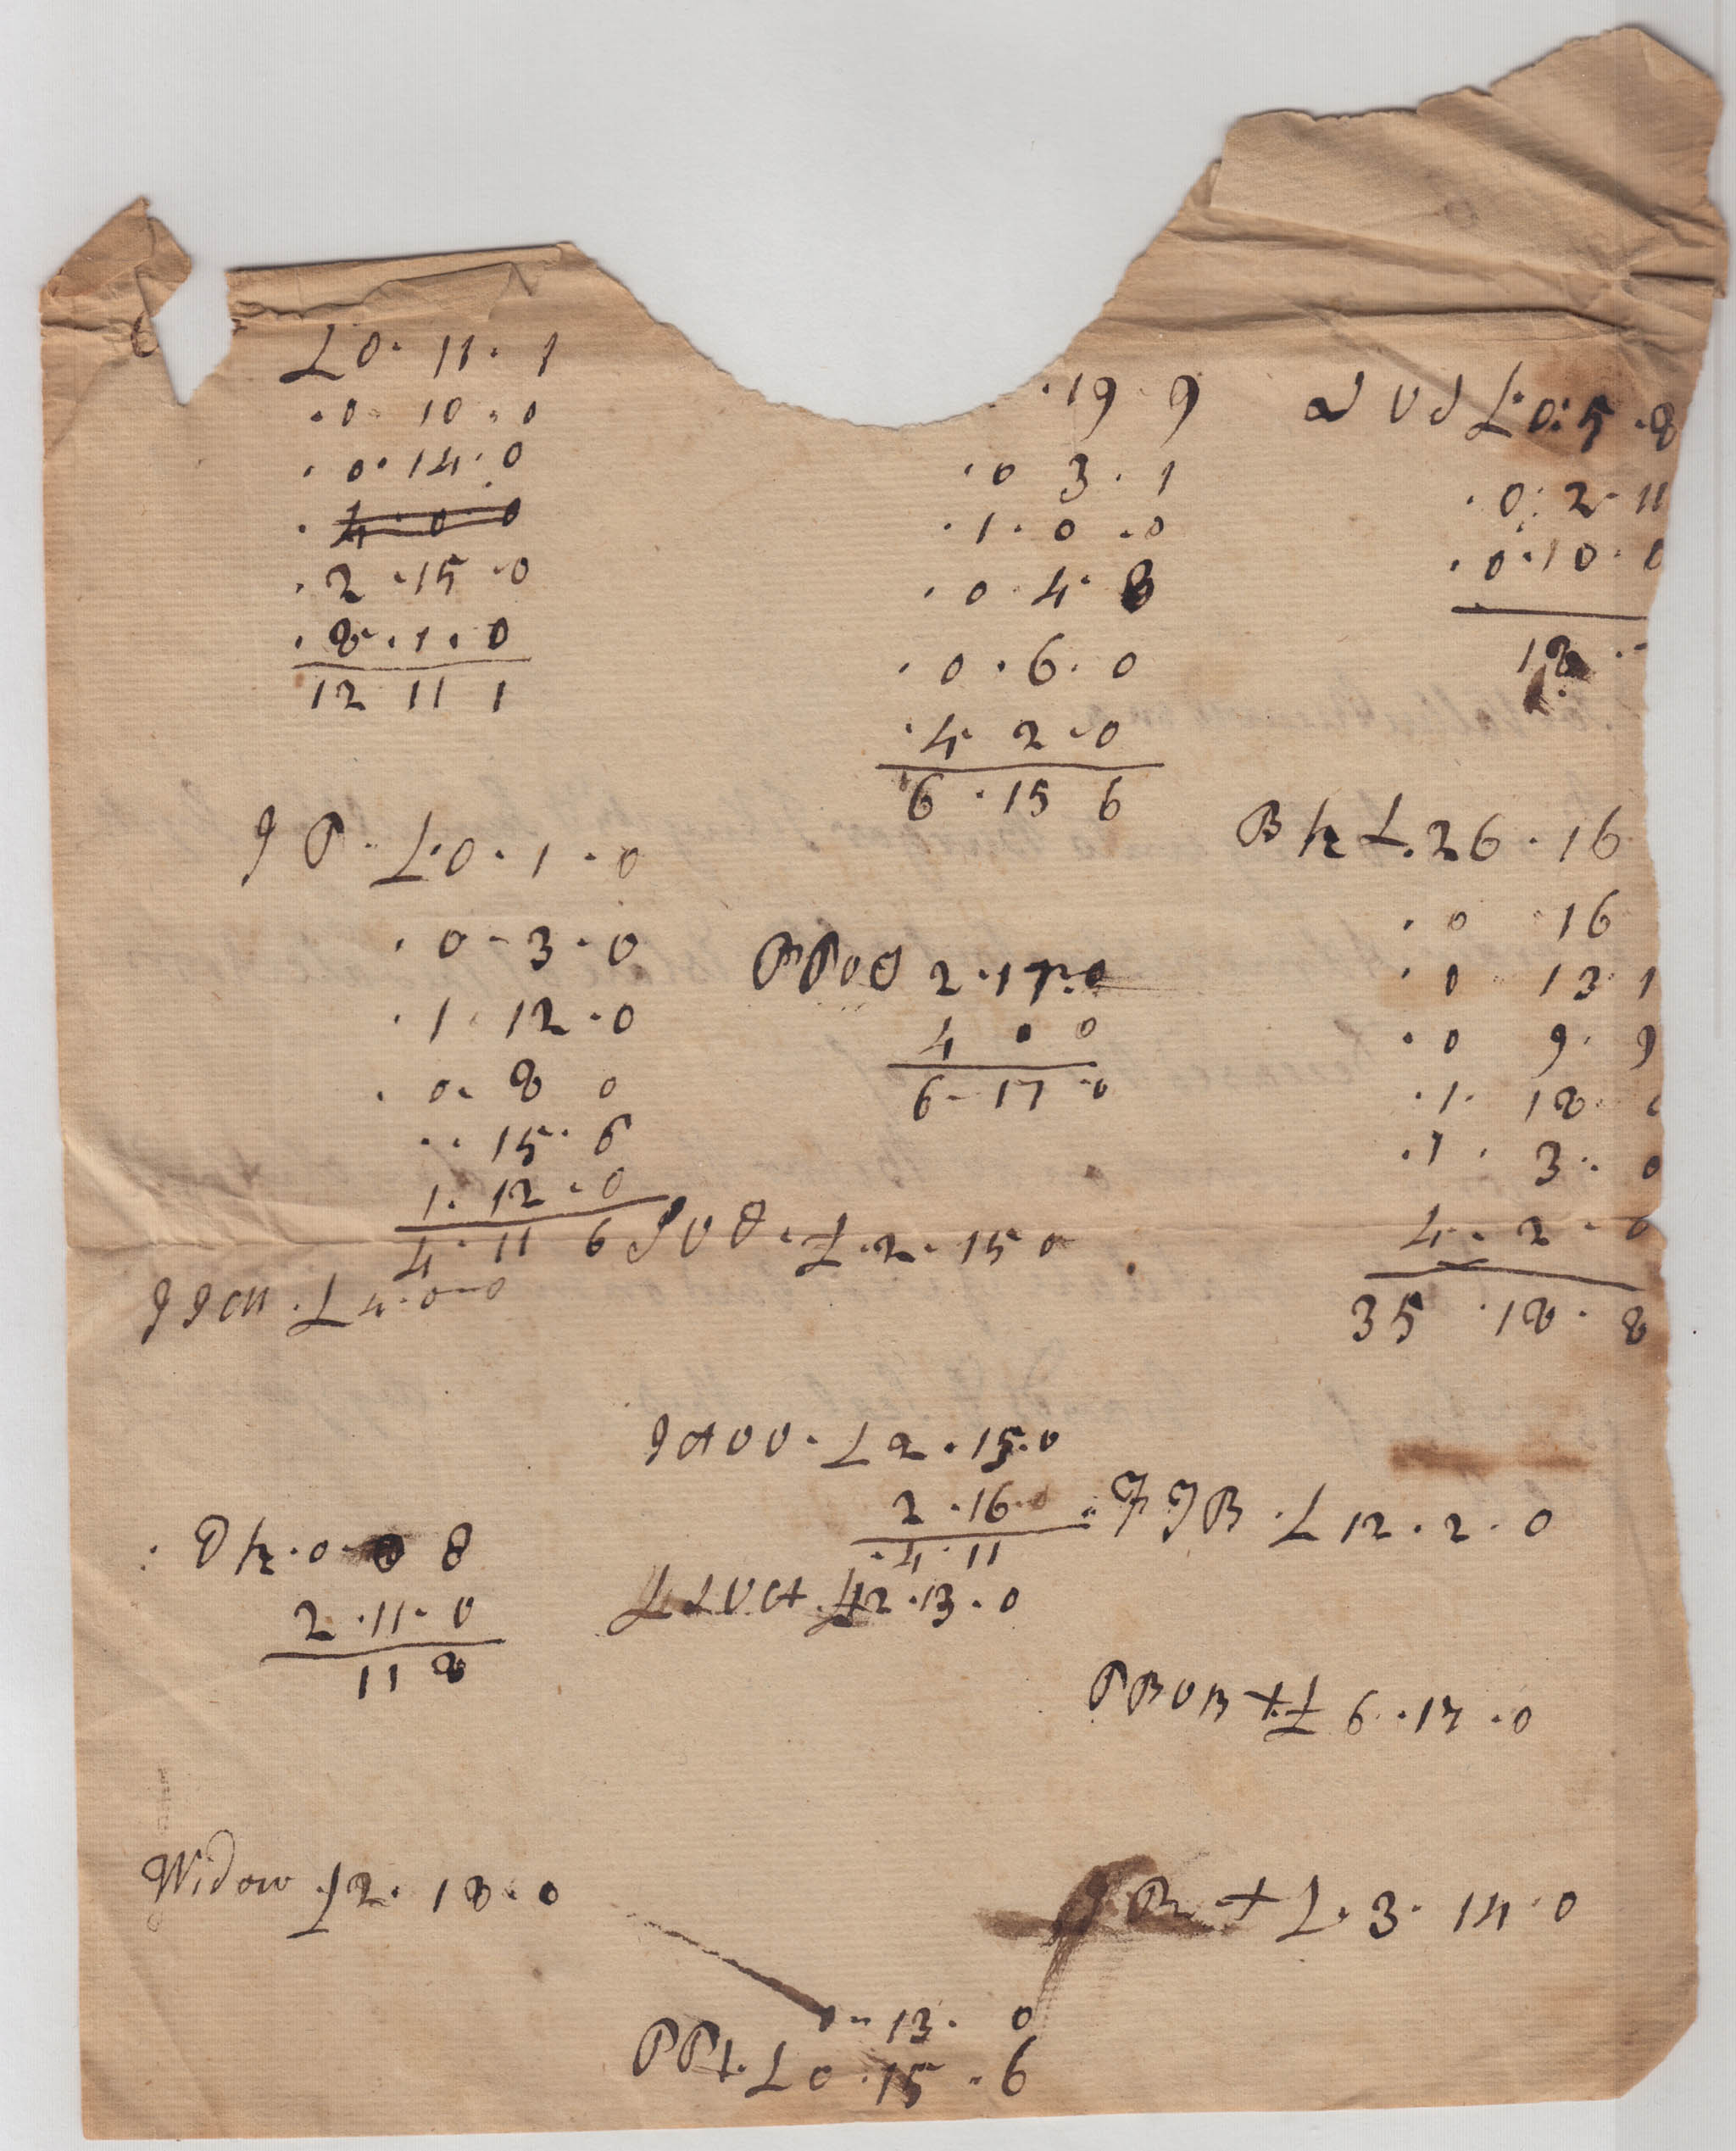 £ 0 · 11 · 1
· 0 · 10 · 0
· 0 · 14 · 0
· 4 · 0 · 0
· 2 · 15 · 0
· 8 · 1 · 0
12 11 1
· 19 · 9
· 0 3 · 1
· 1 · 0 · 0
· 0 · 4 · 8
· 0 · 6 · 0
· 4 · 2 · 0
6 · 15 6
£ 0 : 5 · 8
· 0 : 2 · 11
· 0 · 10 · 0
18 ·
J P · £ · 0 · 1 · 0
· 0 - 3 · 0
· 1 · 12 · 0
· 0 · 8 0
· · 15 · 6
1 · 12 · 0
4 · 11 6
2 · 17 · 0
4 0 0
6 - 17 · 0
B K £ · 26 · 16
· 0 · 16
· 0 13 1
· 0 9 · 9
· 1 · 18 ·
· 1 · 3 · 0
4 · 2 · 0
35 · 18 · 8
J V D · £ · 2 · 15 0
J J M · £ 4 · 0 - 0
J A V V · £ 2 · 15 · 0
2 · 16 · 0
· 4 · 11
J J B · £ 12 · 2 · 0
D K · 0 · 8
2 · 11 · 0
11 8
£ 2 · 13 · 0
P B V B + £ 9 · 17 · 0
Widow £ 2 · 18 · 0
J B + £ · 3 · 14 · 0
0 - 13 · 0
P P + · £ 0 · 15 · 6